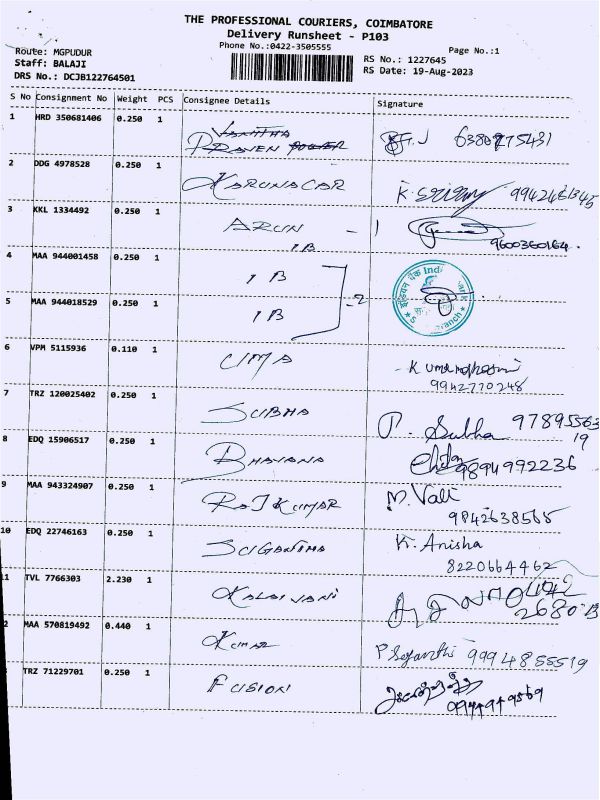 THE PROFESSIONAL COURIERS, COIMBATORE
Delivery Runsheet - P103
Phone No.:0422-3505555
Page No.:1
Route: MGPUDUR
RS No.: 1227645
Staff: BALAJI
RS Date: 19-Aug-2023
DRS No.: DCJB122764501
S No Consignment No Weight PCS Consignee Details Signature
1 HRD 350681406 0.250 1 PRAVEEN
2 DDG 4978528 0.250 1 KARUNACAR
3 KKL 1334492 0.250 1 ARUN - 1
1B 9600360164
4 MAA 944001458 0.250 1 1 B
5 MAA 944018529 0.250 1 1 B - 2
6 VPM 5115936 0.110 1 CIMA
9942770248
7 TRZ 120025402 0.250 1 SUBHA P. Subha 97895563
19
8 EDQ 15906517 0.250 1 BHAVANA 9894992236
9 MAA 943324907 0.250 1 RAJKUMAR M. Vali
9842638565
10 EDQ 22746163 0.250 1 SUGANTHA K. Anisha
8220664462
TVL 7766303 2.230 1 KALAIVANI
MAA 570819492 0.440 1 KUMAR 9994855519
TRZ 71229701 0.250 1 FUSION